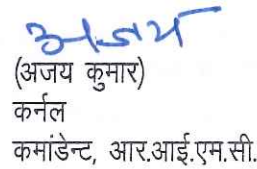 अजय
(अजय कुमार)
कर्नल
कमांडेन्ट, आर.आई.एम.सी.